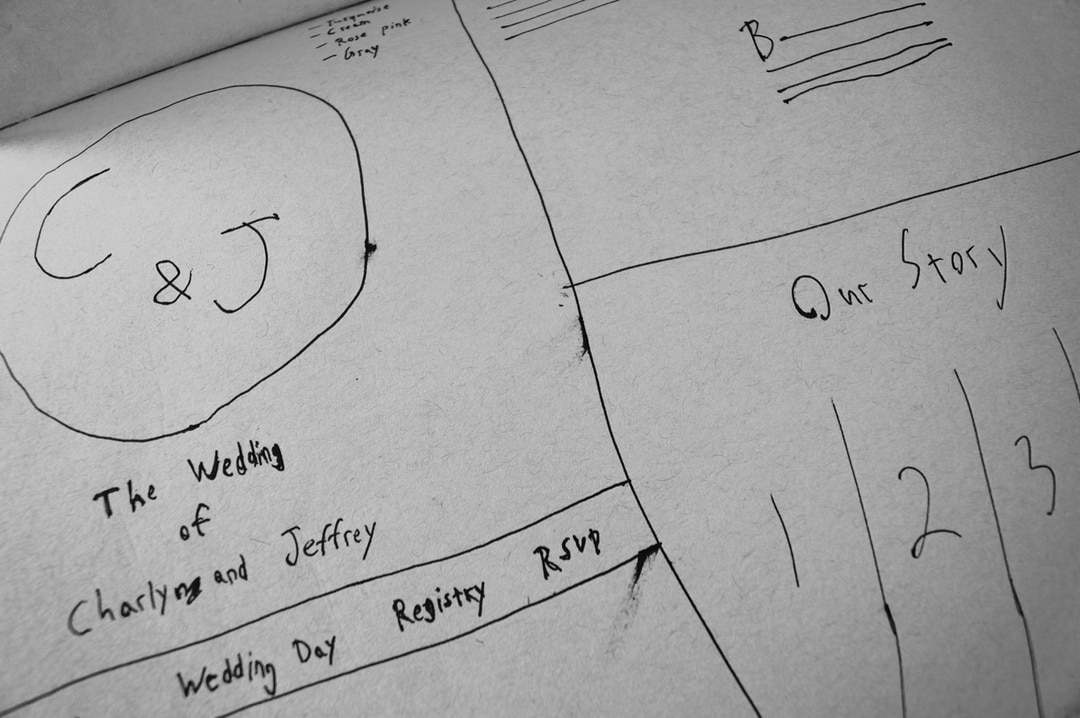 - Turquoise
- Cream
- Rose pink
- Gray
C & J
The Wedding
of
Charlyn and Jeffrey
Wedding Day Registry RSVP
B
Our Story
1 2 3